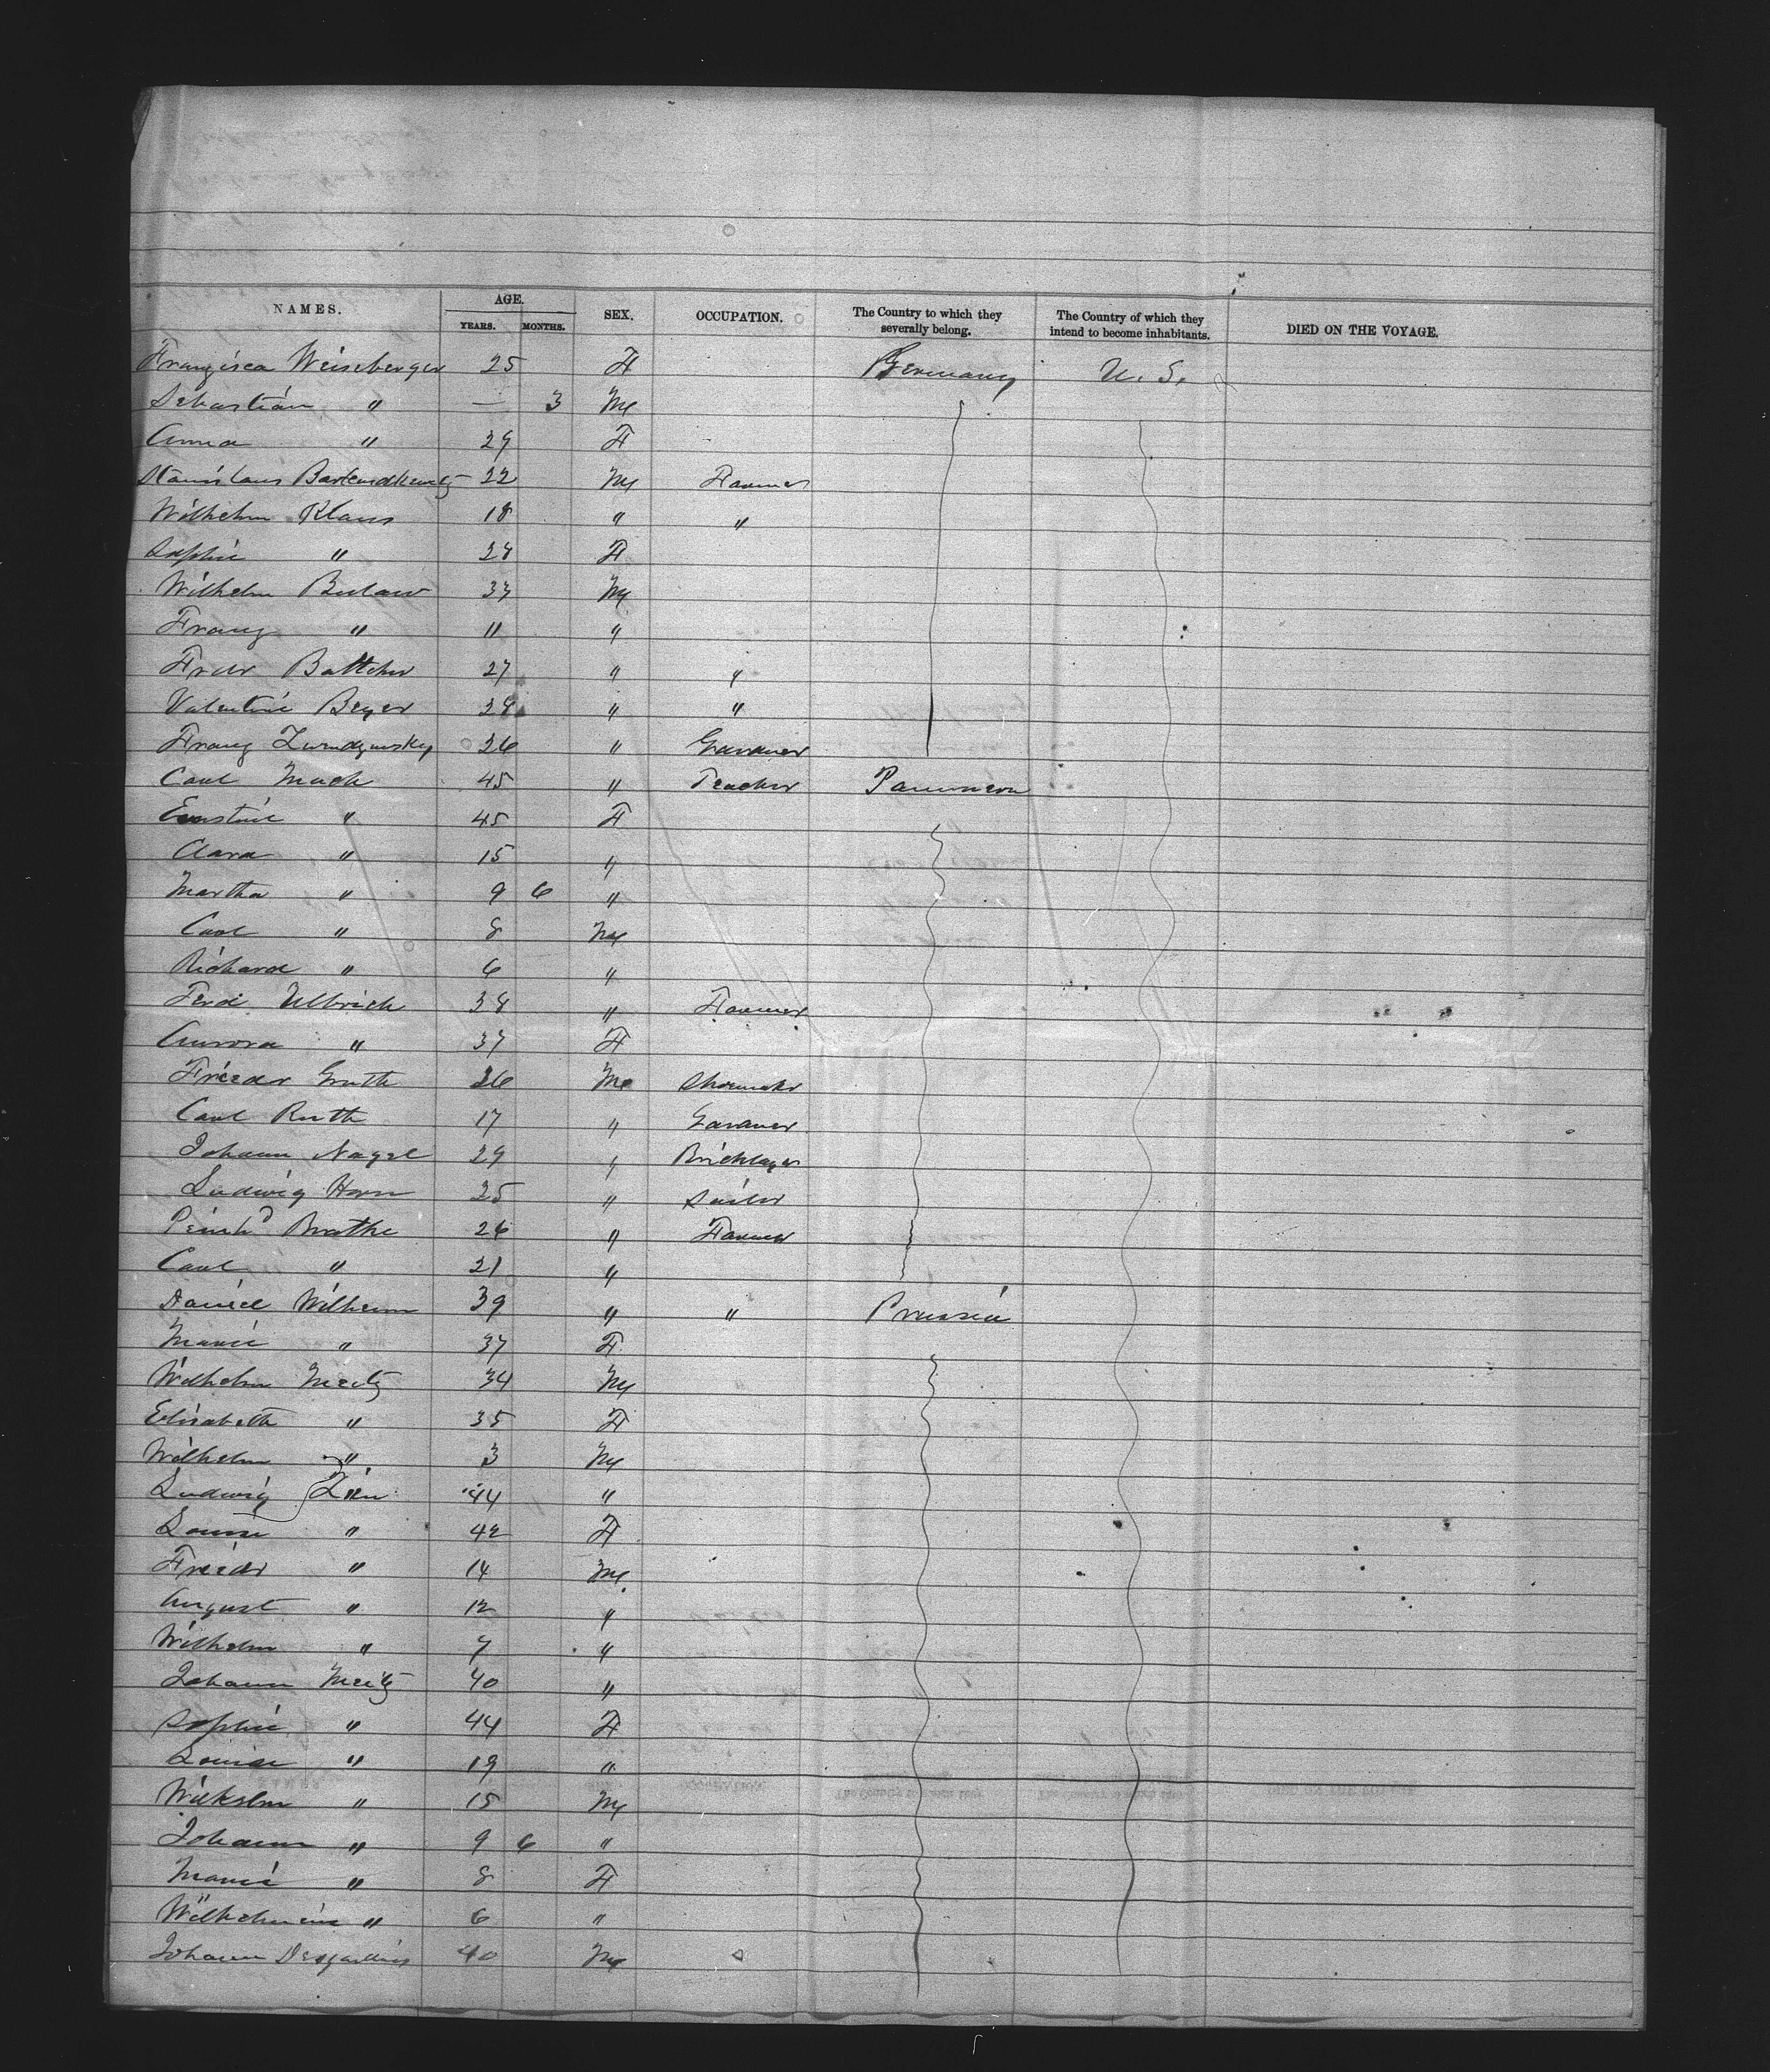 NAMES. AGE. YEARS. MONTHS. SEX. OCCUPATION. The Country to which they severally belong. The Country of which they intend to become inhabitants. DIED ON THE VOYAGE.
Franzisca Weissberger 25 F Germany U. S.
Sebastian " — 3 M
Anna " 29 F
Stanislaus 22 M Farmer
Wilhelm Klaus 18 " "
Sophie " 28 F
Wilhelm Bulow 37 M
Franz " 11 "
Fredr Battcher 27 " "
Valentine Beyer 28 " "
Franz 26 " Gardner
Carl Mack 45 " Teacher
Ernstine " 45 F
Clara " 15 "
Martha " 9 6 "
Carl " 8 M
Richard " 6 "
Ferd Ulbrich 38 " Farmer
Aurora " 37 F
Friedr Gruth 26 M Shoemakr
Carl Ruth 17 " Gardner
Johann Nagel 29 " Bricklayer
Ludwig Horn 25 " Sailor
Brathe 26 " Farmer
Carl " 21 "
Daniel Wilhelm 39 " " Prussia
Marie " 37 F
Wilhelm Meitz 34 M
Elisabeth " 35 F
Wilhelm " 3 M
Ludwig Zien 44 "
Louise " 42 F
Friedr " 14 M
August " 12 "
Wilhelm " 7 "
Johann Meitz 40 "
Sophie " 44 F
Louise " 19 "
Wilhelm " 15 M
Johann " 9 6 "
Marie " 8 F
Wilhelmine " 6 "
Johann Desjardins 40 M